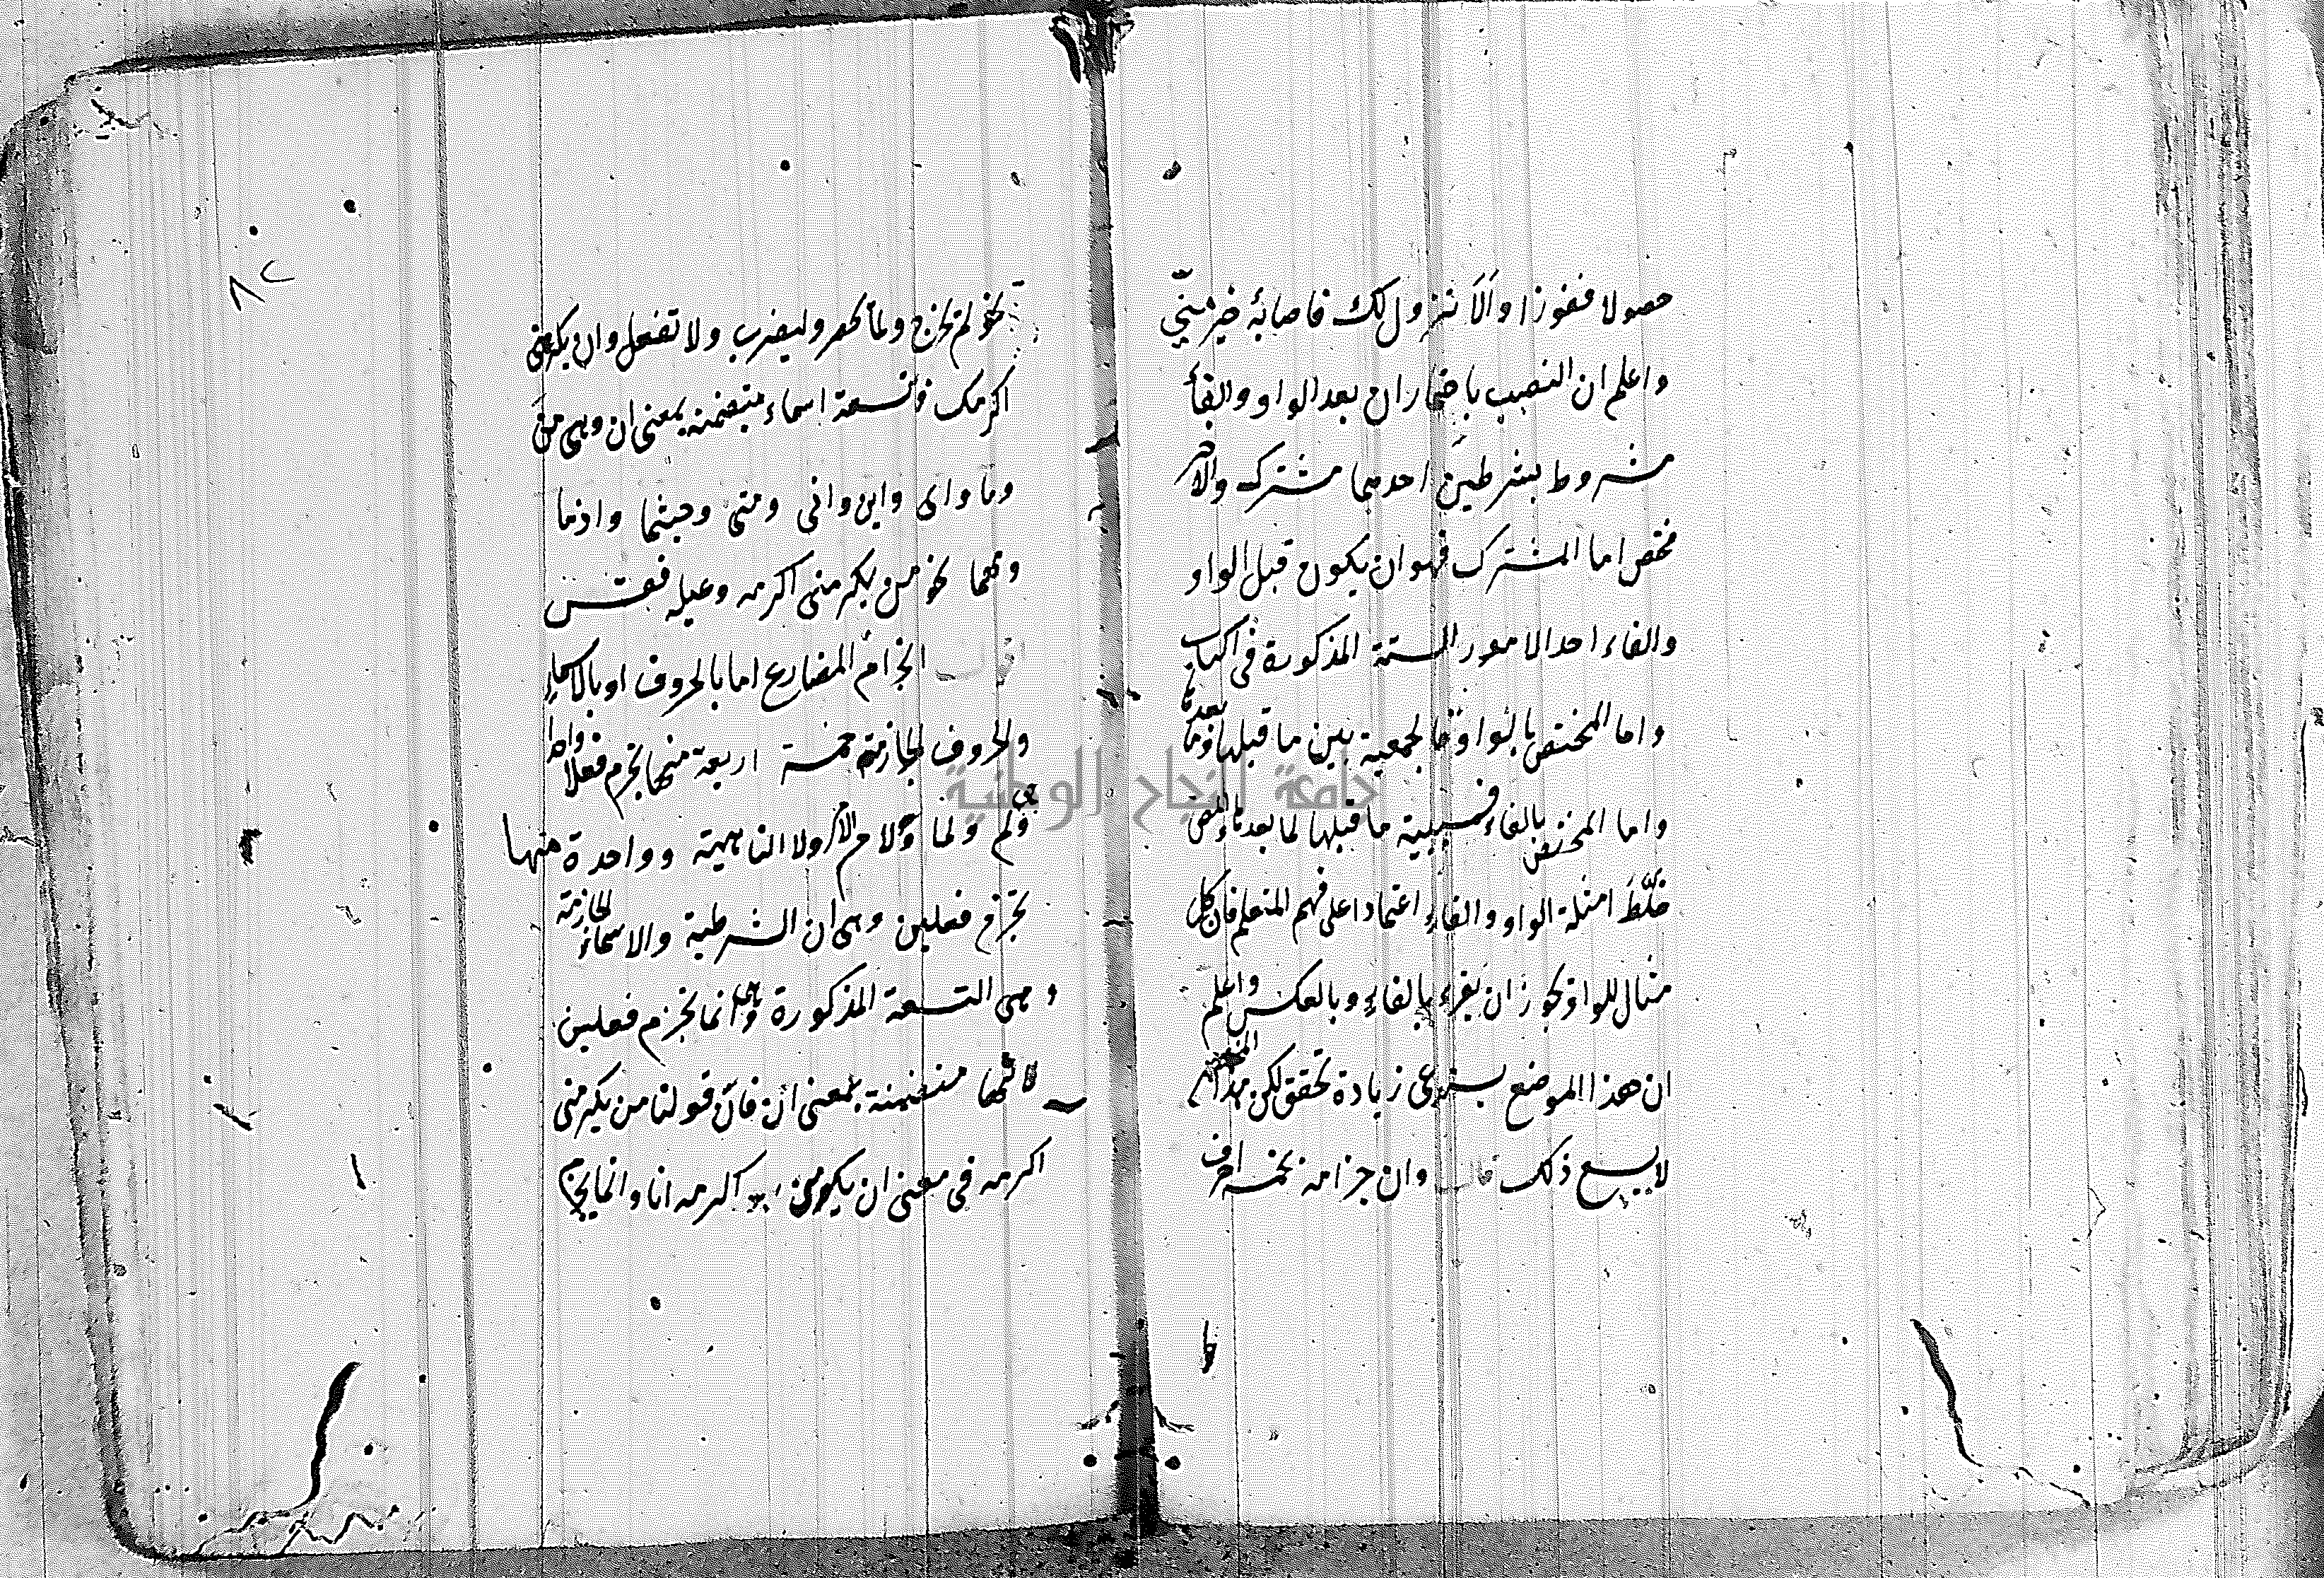 حصولا ففوزا والا نزول لك فاصابة خير منى
واعلم ان النصب باضمار ان بعد الواو والفأ
مشروط بشرطين احدهما مشترك والآخر
مختص اما المشترك فهو ان يكون قبل الواو
والفاء احد الامور الستة المذكورة فى الكتاب
واما المختص بالواو فالجمعية بين ما قبلها وما بعدها
واما المختص بالفاء فسببية ما قبلها لما بعدها والمص
خلّط امثلة الواو والفاء اعتمادا على فهم المتعلم فان كل
مثال للواو يجوز ان يقرء بالفاء وبالعكس واعلم
ان هذا الموضع يستدعى زيادة تحقق لكن هذا المختصر
لا يسع ذلك قال وان جزامه بخمسة احرف
٨٢
نحو لم يخرج ولما يحضر وليضرب ولا تفعل وان يكرمنى
اكرمك وتسعة اسماء متضمنة بمعنى ان وهى من
وما واى واين وانى ومتى وحيثما واذما
ومهما نحو من يكرمنى اكرمه وعليه فقس
اقول الجزام المضارع اما بالحروف او بالاسماء
والحروف الجازمة خمسة اربعة منها تجزم فعلا واحدا
وهى لم ولما ولام الامر ولا الناهية وواحدة منها
تجزم فعلين وهى ان الشرطية والاسماء الجازمة
هى التسعة المذكورة وهى انما تجزم فعلين
لانها متضمنة بمعنى ان فان قولنا من يكرمنى
اكرمه فى معنى ان يكرمنى اكرمه انا وانما يجزم
جامعة النجاح الوطنية